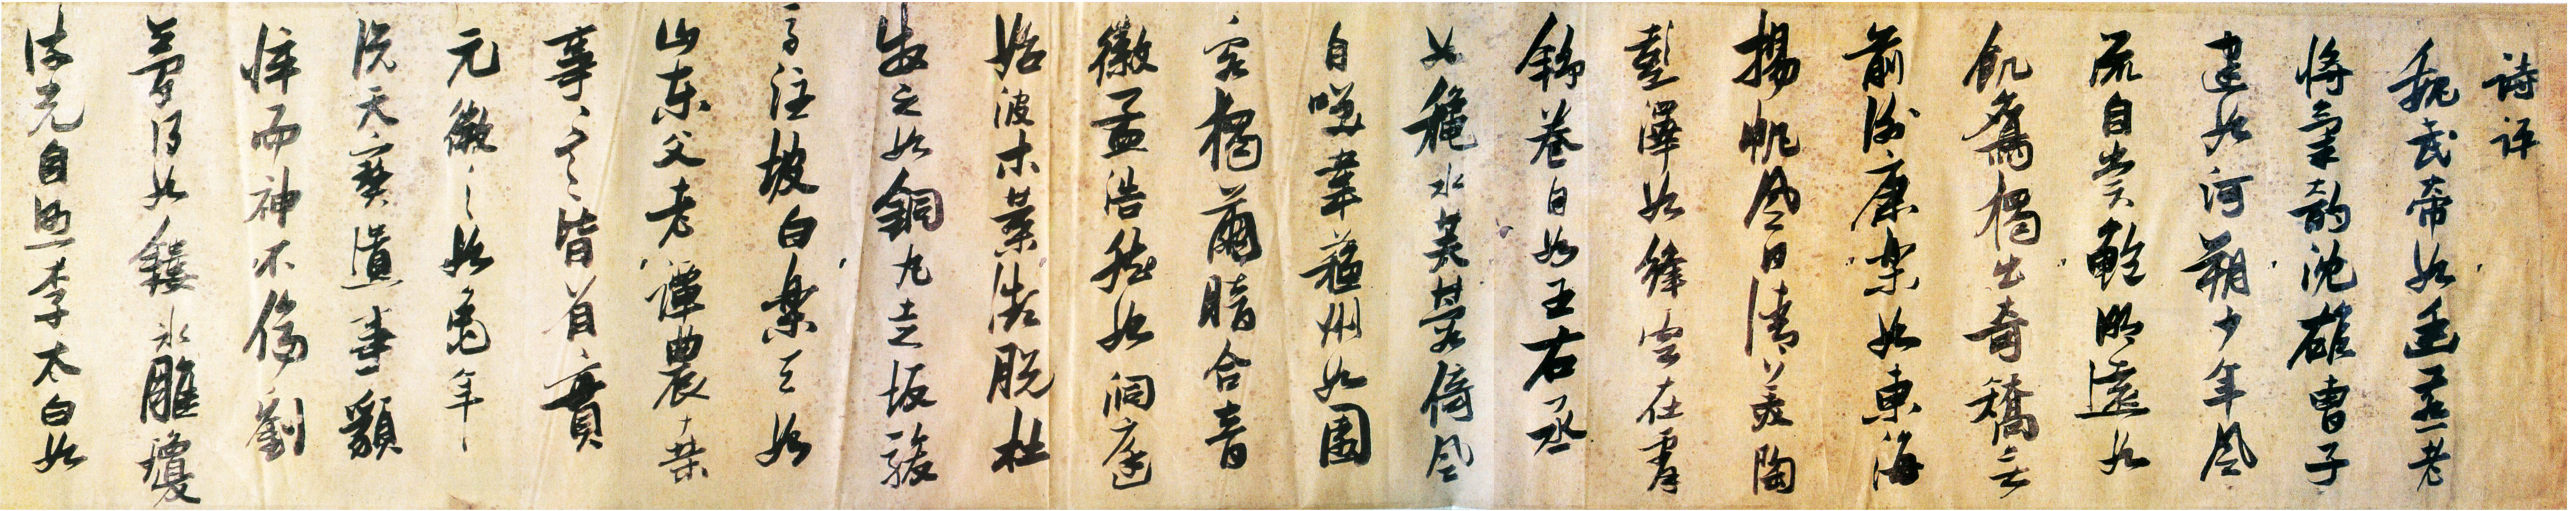 詩評
魏武帝如幽燕老
將氣韵沈雄曹子
建如河朔少年風
流自賞鮑明遠如
飢鷹獨出奇矯无
前謝康樂如東海
揚帆風日清美陶
彭澤如絳雲在霄
舒卷自如王右丞
如龝水芙蕖倚風
自咲韋蘇州如園
客獨繭暗合音
徽孟浩然如洞庭
始波木葉脫杜
牧之如銅丸走坂駿
馬注坡白樂天如
山東父老譚農桑
事〻言〻皆着實
元微之如龜年
說天寶遺事貌
悴而神不傷劉
夢得如鏤冰雕瓊
流光自照李太白如